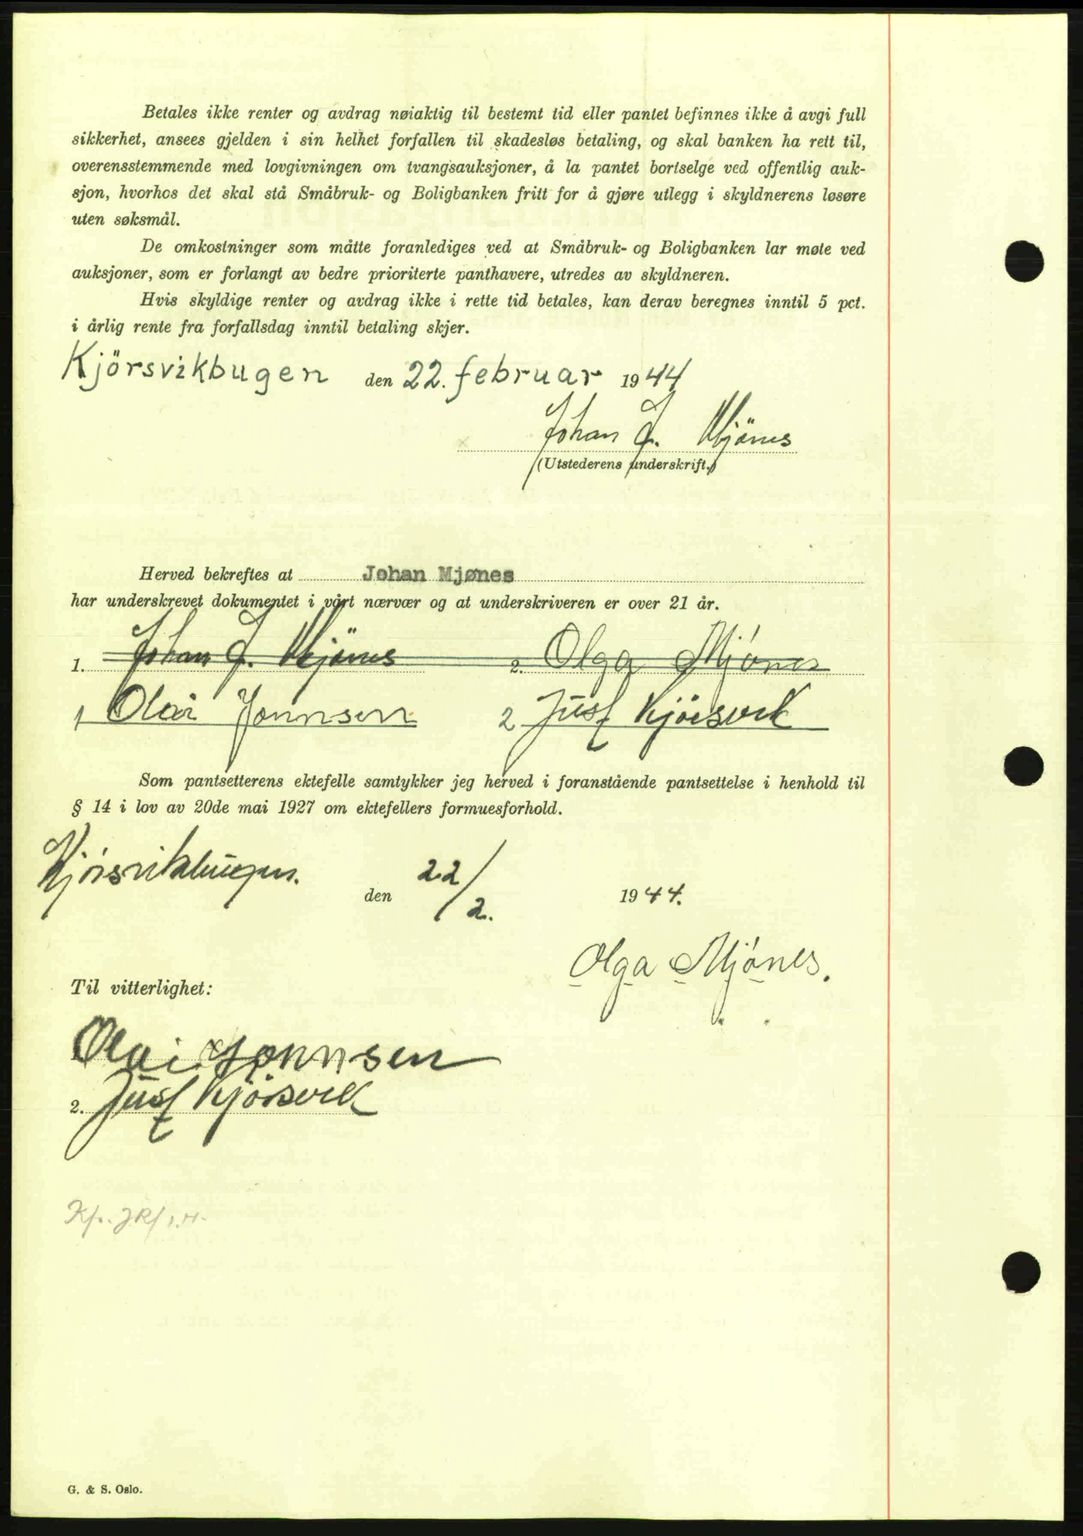 Betales ikke renter og avdrag nøiaktig til bestemt tid eller pantet befinnes ikke å avgi full
sikkerhet, ansees gjelden i sin helhet forfallen til skadesløs betaling, og skal banken ha rett til,
overensstemmende med lovgivningen om tvangsauksjoner, å la pantet bortselge ved offentlig auk-
sjon, hvorhos det skal stå Småbruk- og Boligbanken fritt for å gjøre utlegg i skyldnerens løsøre
uten søksmål.
De omkostninger som måtte foranlediges ved at Småbruk- og Boligbanken lar møte ved
auksjoner, som er forlangt av bedre prioriterte panthavere, utredes av skyldneren.
Hvis skyldige renter og avdrag ikke i rette tid betales, kan derav beregnes inntil 5 pct.
i årlig rente fra forfallsdag inntil betaling skjer.
Kjörsvikbugen den 22. februar 1944
Johan J. Mjönes
(Utstederens underskrift.)
Herved bekreftes at Johan Mjønes
har underskrevet dokumentet i vårt nærvær og at underskriveren er over 21 år.
1. Johan J. Mjönes 2. Olga Mjónes
1 Olai Jonnsen 2 Jusf Kjörsvik
Som pantsetterens ektefelle samtykker jeg herved i foranstående pantsettelse i henhold til
§ 14 i lov av 20de mai 1927 om ektefellers formuesforhold.
Kjörsvikbugen. den 22/2. 1944.
Olga Mjónes.
Til vitterlighet:
Olai Jonnsen
2. Jusf Kjörsvik
G. & S. Oslo.